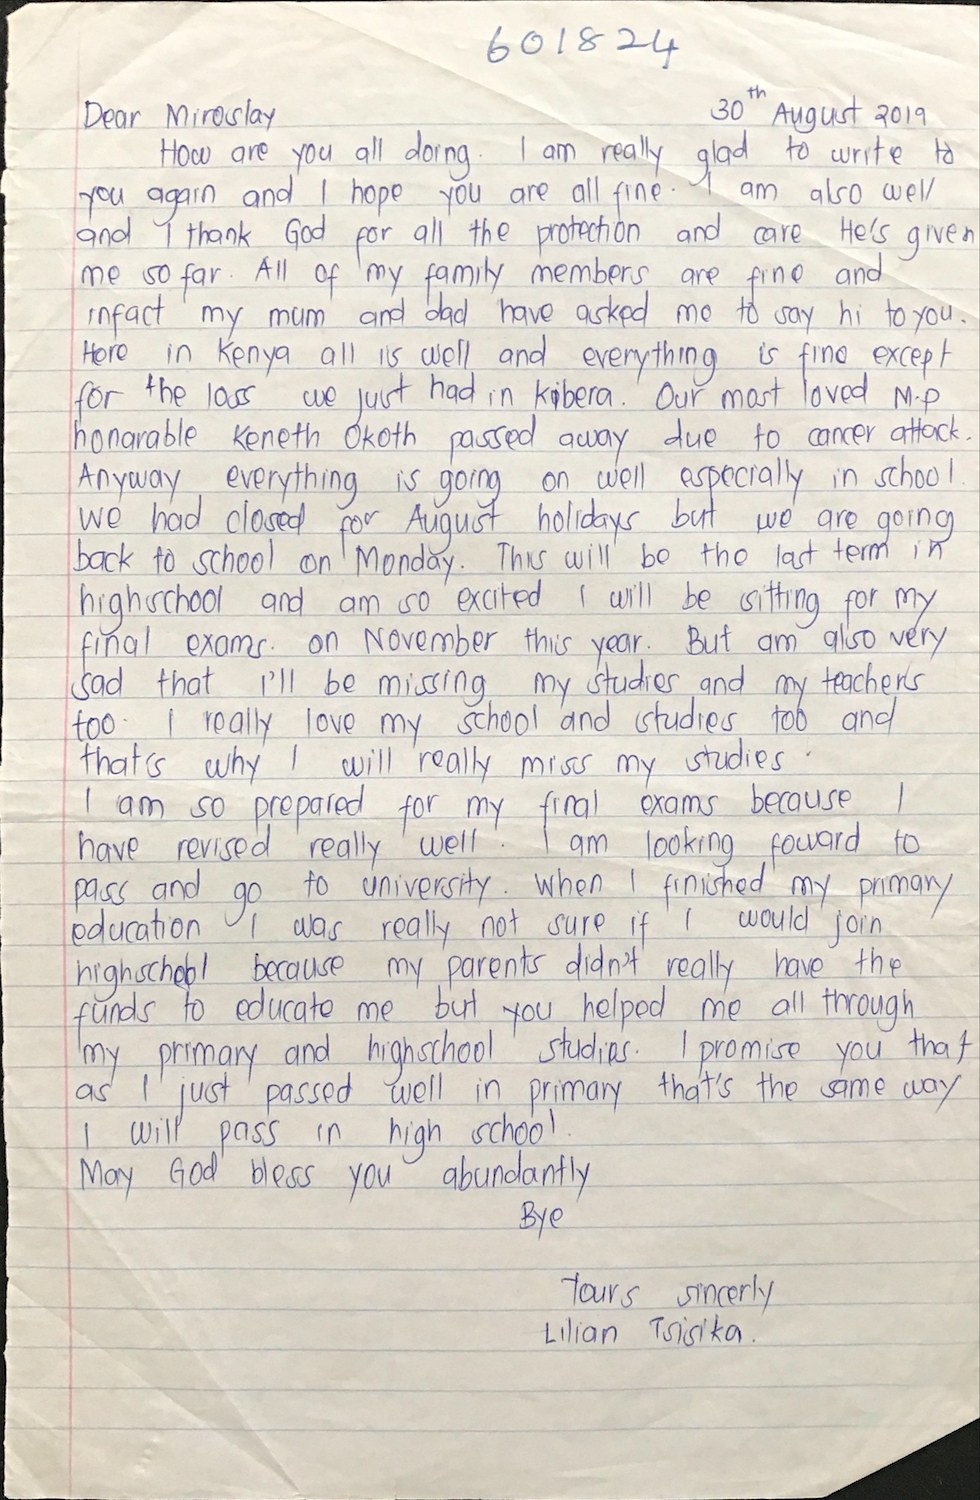 601824
Dear Miroslay 30th August 2019
How are you all doing. I am really glad to write to
you again and I hope you are all fine. I am also well
and I thank God for all the protection and care He's given
me so far. All of my family members are fine and
infact my mum and dad have asked me to say hi to you.
Here in Kenya all is well and everything is fine except
for the loss we just had in Kibera. Our most loved M.P
honarable Keneth Okoth passed away due to cancer attack.
Anyway everything is going on well especially in school.
We had closed for August holidays but we are going
back to school on Monday. This will be the last term in
highschool and am so excited I will be sitting for my
final exams. on November this year. But am also very
sad that I'll be missing my studies and my teachers
too. I really love my school and studies too and
that's why I will really miss my studies.
I am so prepared for my final exams because I
have revised really well. I am looking foward to
pass and go to university. When I finished my primary
education I was really not sure if I would join
highschool because my parents didn't really have the
funds to educate me but you helped me all through
my primary and highschool studies. I promise you that
as I just passed well in primary that's the same way
I will pass in high school.
May God bless you abundantly
Bye
Yours sincerly
Lilian Tsisika.